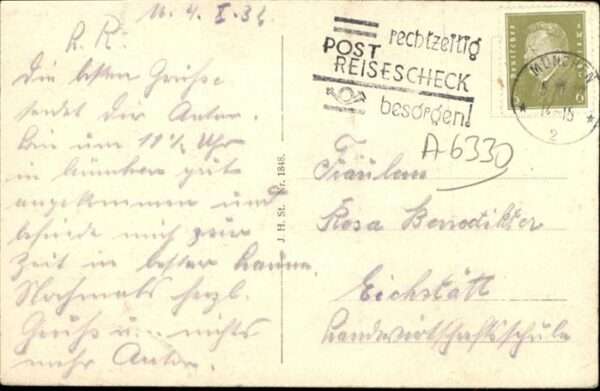 M. 4. I. 32
L. R.!
Die besten Grüsse
sendet Dir Anton.
Bin um 11½ Uhr
in München gut
angekommen und
befinde mich zur
Zeit in bester Laune.
Nochmals herzl.
Grüße u. nichts
mehr Anton.
J. H. St. Nr. 1848.
rechtzeitig
POST
REISESCHECK
besorgen!
DEUTSCHES REICH
6
MÜNCHEN
2
A6330
Fräulein
Rosa Benedikter
Eichstätt
Landwirtschaftsschule